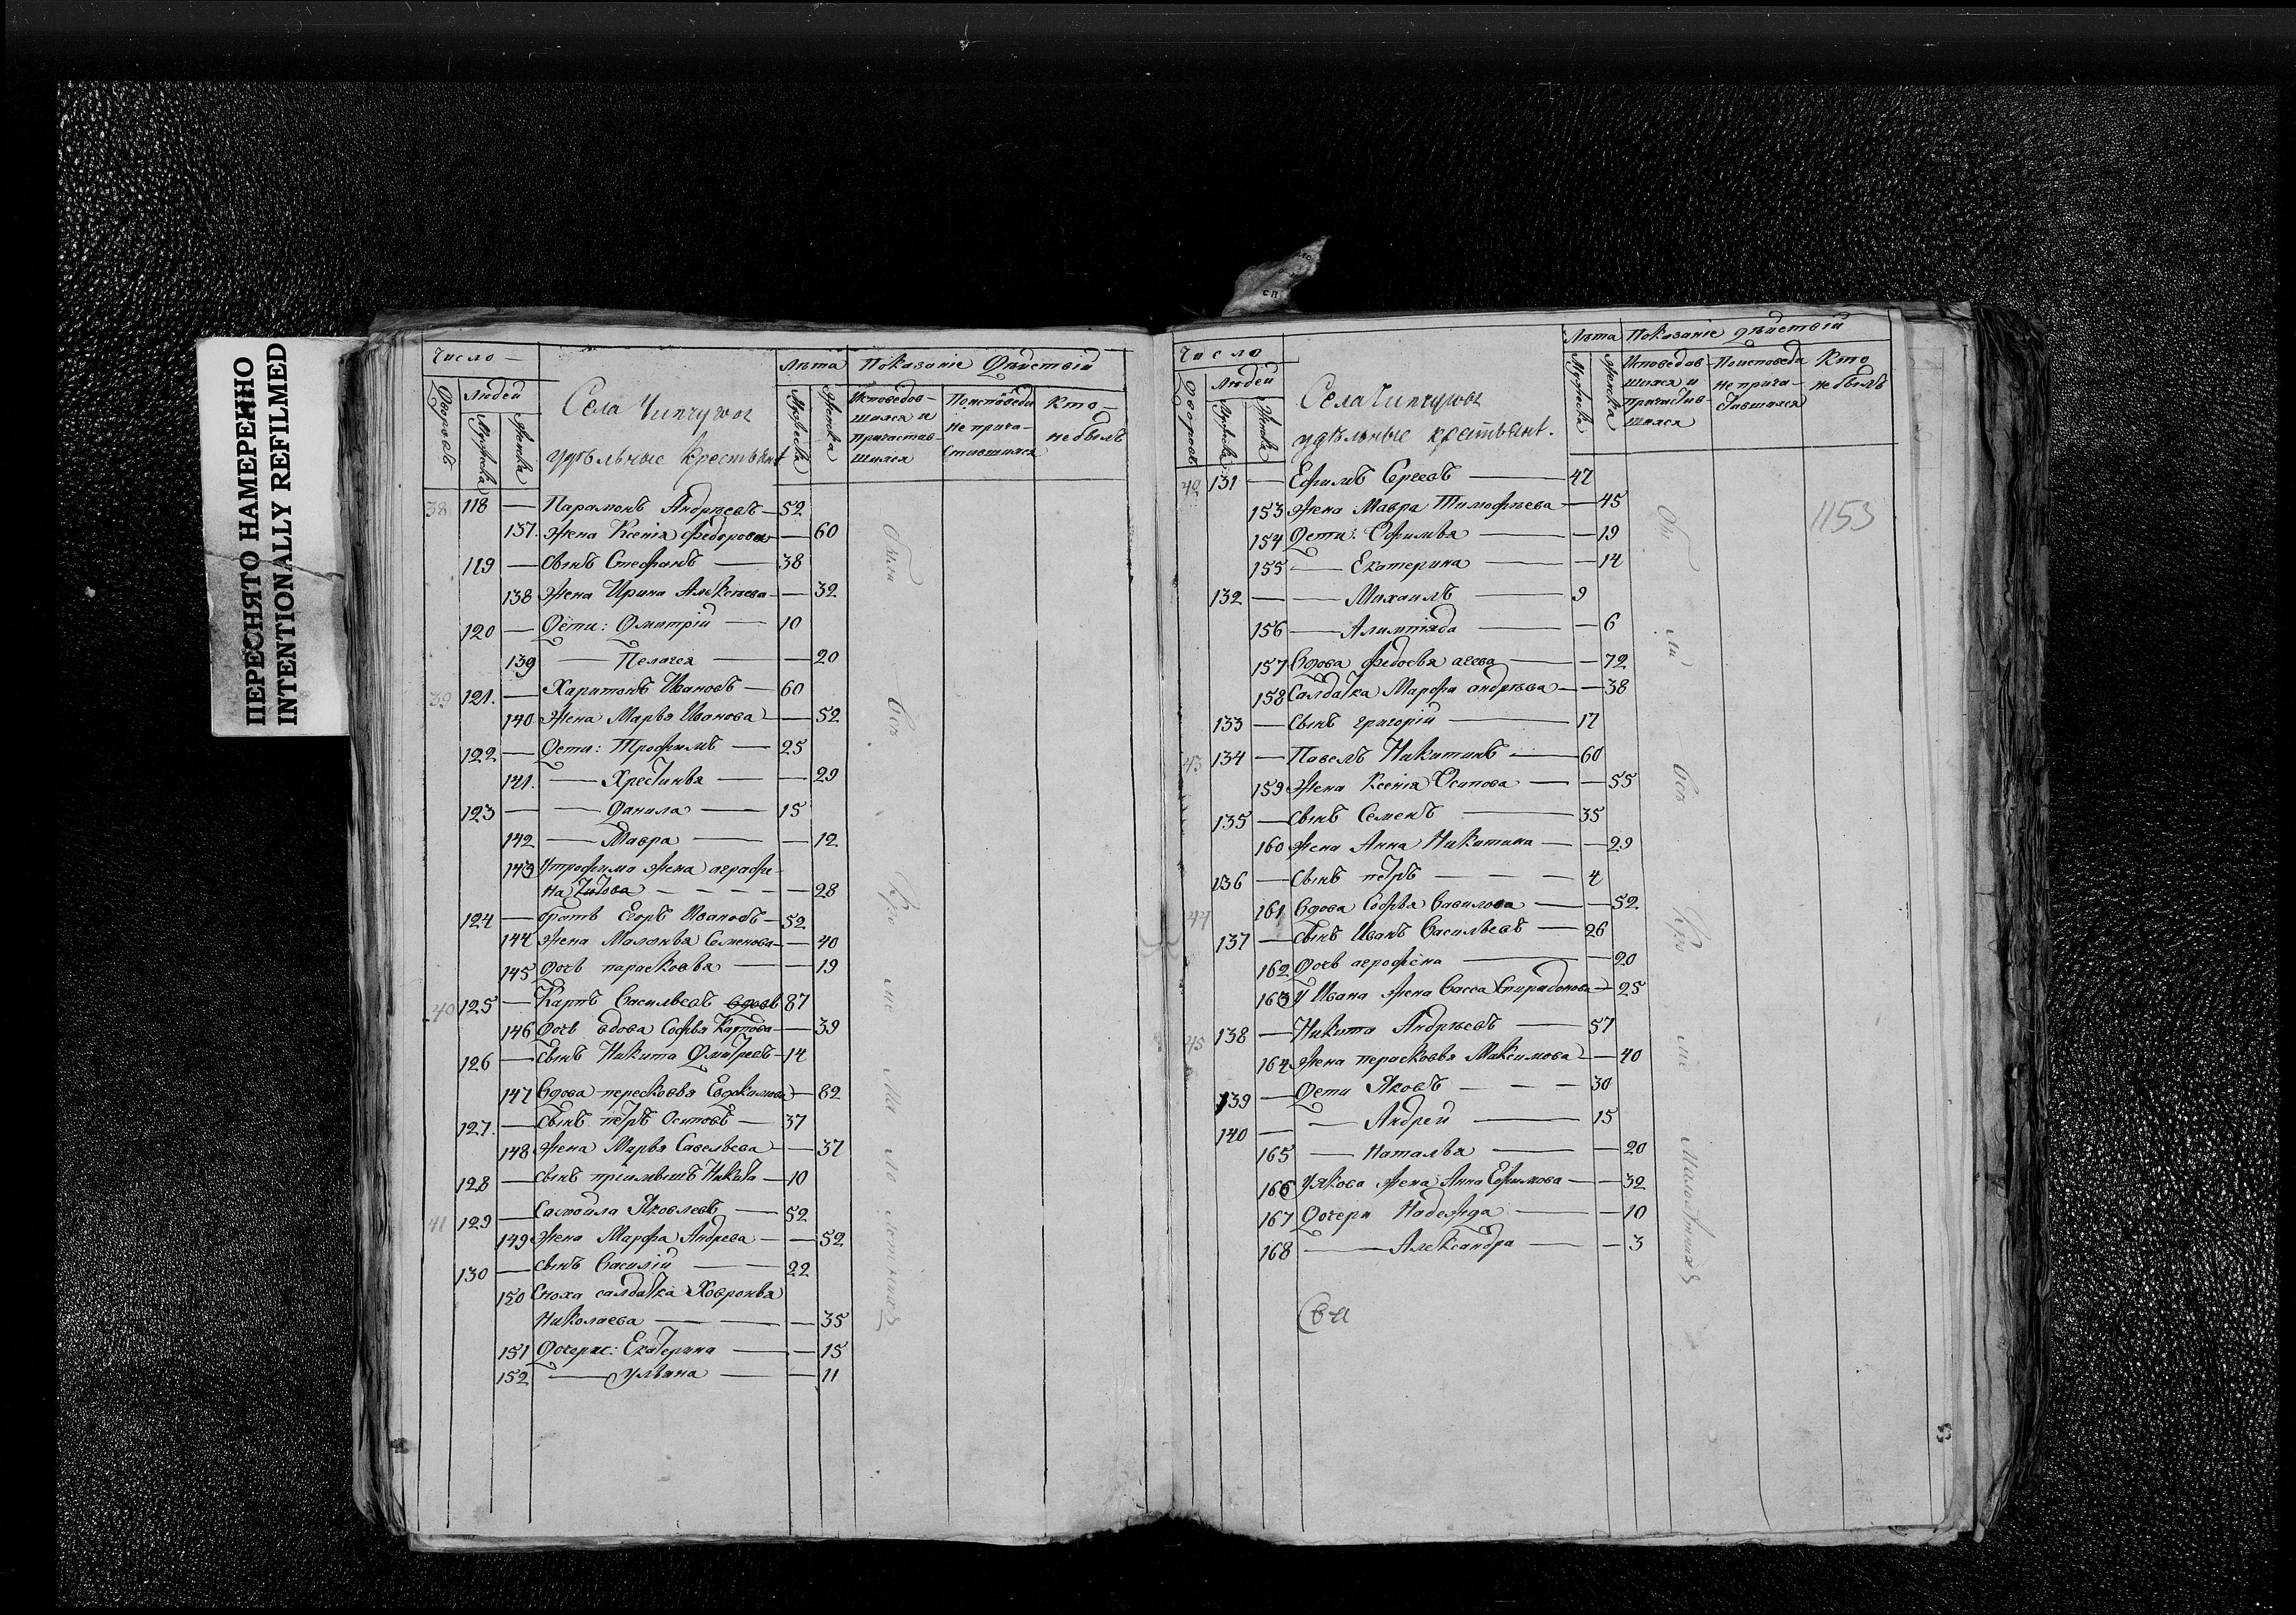 ПЕРЕСНЯТО НАМЕРЕННО
INTENTIONALLY REFILMED
Число
Дворовъ
Людей
Мужеска
Женска
Села Чипчугов
удѣльные крестьянѣ
Лѣта
Мужеска
Женска
Показаніе Дѣйствій
Исповедов-
шияся и
Причастив-
шияся
Поисповеди
не прича-
стившияся
Кто
не былъ
38 118 — Парамонъ Андрѣевъ — 52
137. Жена Ксенія Федорова — 60
119 — Сынъ Стефанъ — 38
138 Жена Ирина Алексѣева — 32
120 — Дети: Дмитрій — 10
139 — Пелагея — 20
39 121. — Харитонъ Ивановъ — 60
140 Жена Марья Иванова — 52
122 — Дети: Трофимъ — 25
141. — Хрестинья — 29
123 — Данила — 15
142 — Мавра — 12
143 Утрофима Жена аграфе-
на Титова — 28
124 — братъ Егоръ Ивановъ — 52
144 Жена Маланья Семенова — 40
145 Дочь парасковья — 19
40 125 — Карпъ Васильевъ вдовъ 87
146 Дочь вдова Софья Карпова — 39
126 — Сынъ Никита Дмитреевъ — 14
147 Вдова пересковья Евдокимова — 82
127. — Сынъ петръ Осиповъ — 37
148 Жена Марья Савельева — 37
128 — Сынъ пріимышъ Никита — 10
41 129 — Самойла Яковлевъ — 52
149 Жена Марфа Андрева — 52
130 — Сынъ Василій — 22
150 Сноха салдатка Ховронья
Николаева — 35
151 Дочери: Екатерина — 15
152 — Ульяна — 11
Число
Дворовъ
Людей
Мужеска
Женска
Села Чипчугов
удѣльные крестьянѣ.
Лѣта
Мужеска
Женска
Показаніе дѣйствій
Исповедов
шияся и
Причастив-
шияся
Поисповеди
не прича-
ставшияся
Кто
не былъ
1153
42 131 — Ефимъ Сергеевъ — 47
153 Жена Мавра Тимофѣева — 45
154 Дети: Офимья — 19
155 — Екатерина — 14
132 — Михаилъ — 9
156 — Алимпіяда — 6
157 Вдова Федосья агева — 72
158 Салдатка Марфа андрѣева — 38
133 — Сынъ григорій — 17
43 134 — Павелъ Никитинъ — 60
159 Жена Ксенія Осипова — 55
135 — Сынъ Семенъ — 35
160 Жена Анна Никитина — 29
136 — Сынъ петръ — 4
44 161 Вдова Софья Вавилова — 52
137 — Сынъ Иванъ Васильевъ — 26
162 Дочь агрофена — 20
163 У Ивана Жена Васса Спирадонова — 25
45 138 — Никита Андрѣевъ — 57
164 Жена перасковья Максимова — 40
139 — Дети Яковъ — 30
140 — Андрей — 15
165 — Наталья — 20
166 У Якова Жена Анна Ефимова — 32
167 Дочери Надежда — 10
168 — Александра — 3